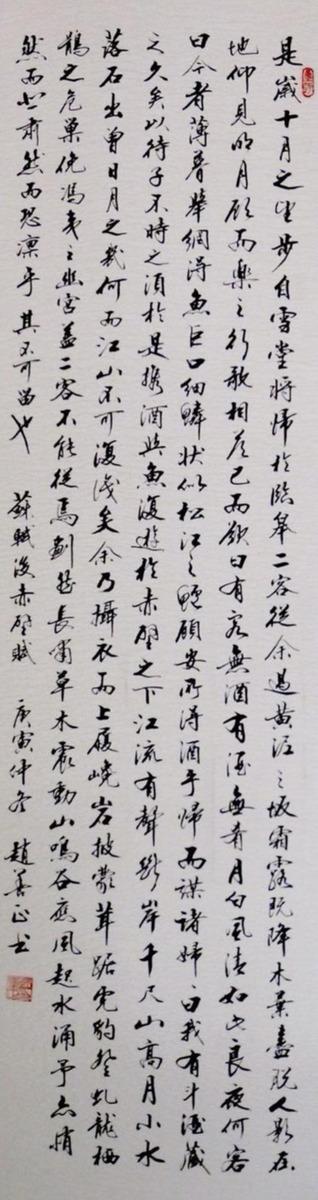 是歲十月之望步自雪堂將歸於臨皋二客從余過黃泥之坂霜露既降木葉盡脫人影在
地仰見明月顧而樂之行歌相答已而歎曰有客無酒有酒無肴月白風清如此良夜何客
曰今者薄暮舉網得魚巨口細鱗狀似松江之鱸顧安所得酒乎歸而謀諸婦婦曰我有斗酒藏
之久矣以待子不時之須於是攜酒與魚復遊於赤壁之下江流有聲斷岸千尺山高月小水
落石出曾日月之幾何而江山不可復識矣余乃攝衣而上履巉岩披蒙茸踞虎豹登虬龍栖
鶻之危巢俯馮夷之幽宮蓋二客不能從焉劃然長嘯草木震動山鳴谷應風起水涌予亦悄
然而悲肅然而恐凜乎其不可留也 蘇軾後赤壁賦 庚寅仲冬 趙善正書